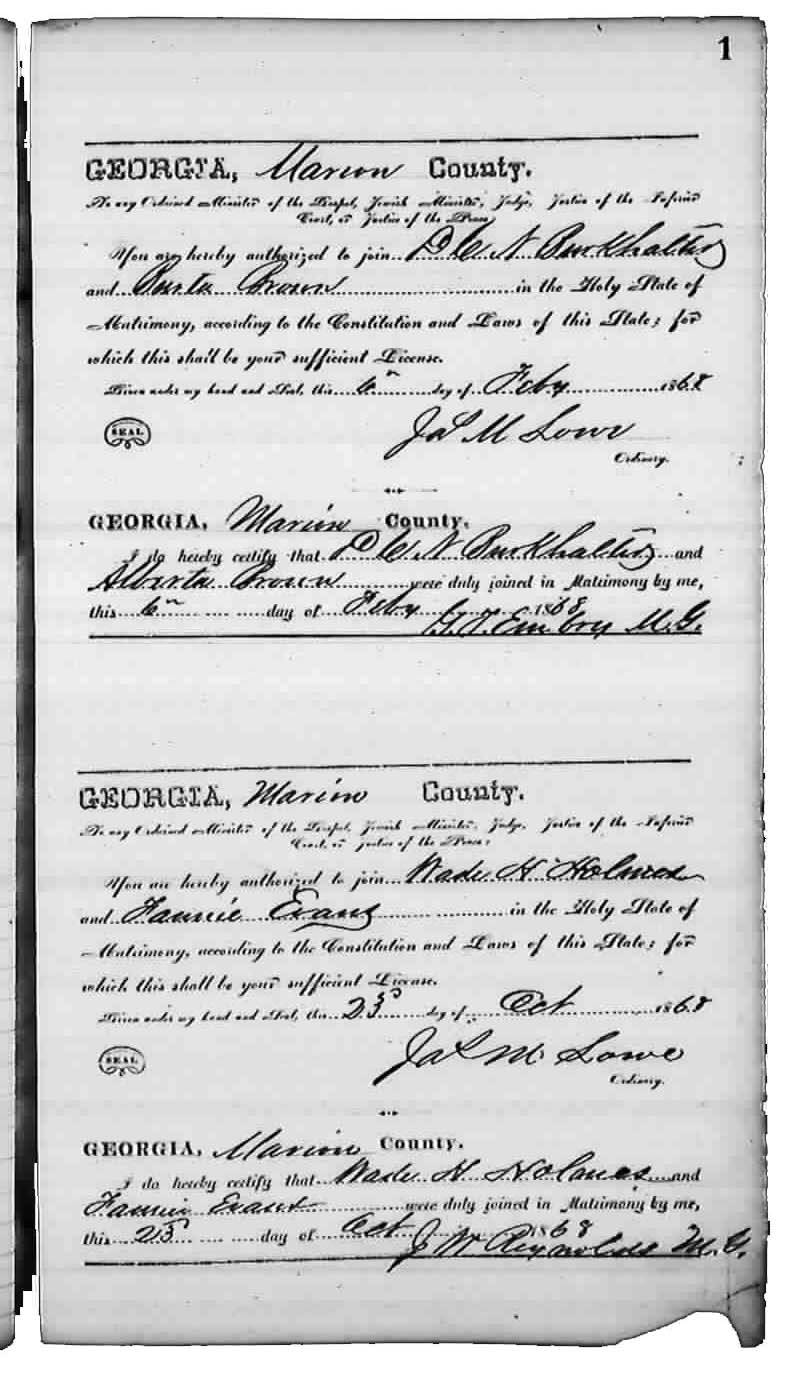 1
GEORGIA, Marion County.
To any Ordained Minister of the Gospel, Jewish Minister, Judge, Justice of the Inferior
Court, or Justice of the Peace;
You are hereby authorized to join D C N Burkhalter
and Burta Brown in the Holy State of
Matrimony, according to the Constitution and Laws of this State; for
which this shall be your sufficient License.
Given under my hand and Seal, this 6th day of Feby 1868
SEAL
Jas M Lowe
Ordinary.
GEORGIA, Marion County.
I do hereby certify that D C N Burkhalter and
Alberta Brown were duly joined in Matrimony by me,
this 6th day of Feby 1868
G. T. Embry M. G.
GEORGIA, Marion County.
To any Ordained Minister of the Gospel, Jewish Minister, Judge, Justice of the Inferior
Court, or Justice of the Peace:
You are hereby authorized to join Wade H Holmes
and Fannie Evans in the Holy State of
Matrimony, according to the Constitution and Laws of this State; for
which this shall be your sufficient License.
Given under my hand and Seal, this 23d day of Oct 1868
SEAL
Jas M Lowe
Ordinary.
GEORGIA, Marion County.
I do hereby certify that Wade H Holmes and
Fannie Evans were duly joined in Matrimony by me,
this 23 day of Oct 1868
J W Reynolds M. G.